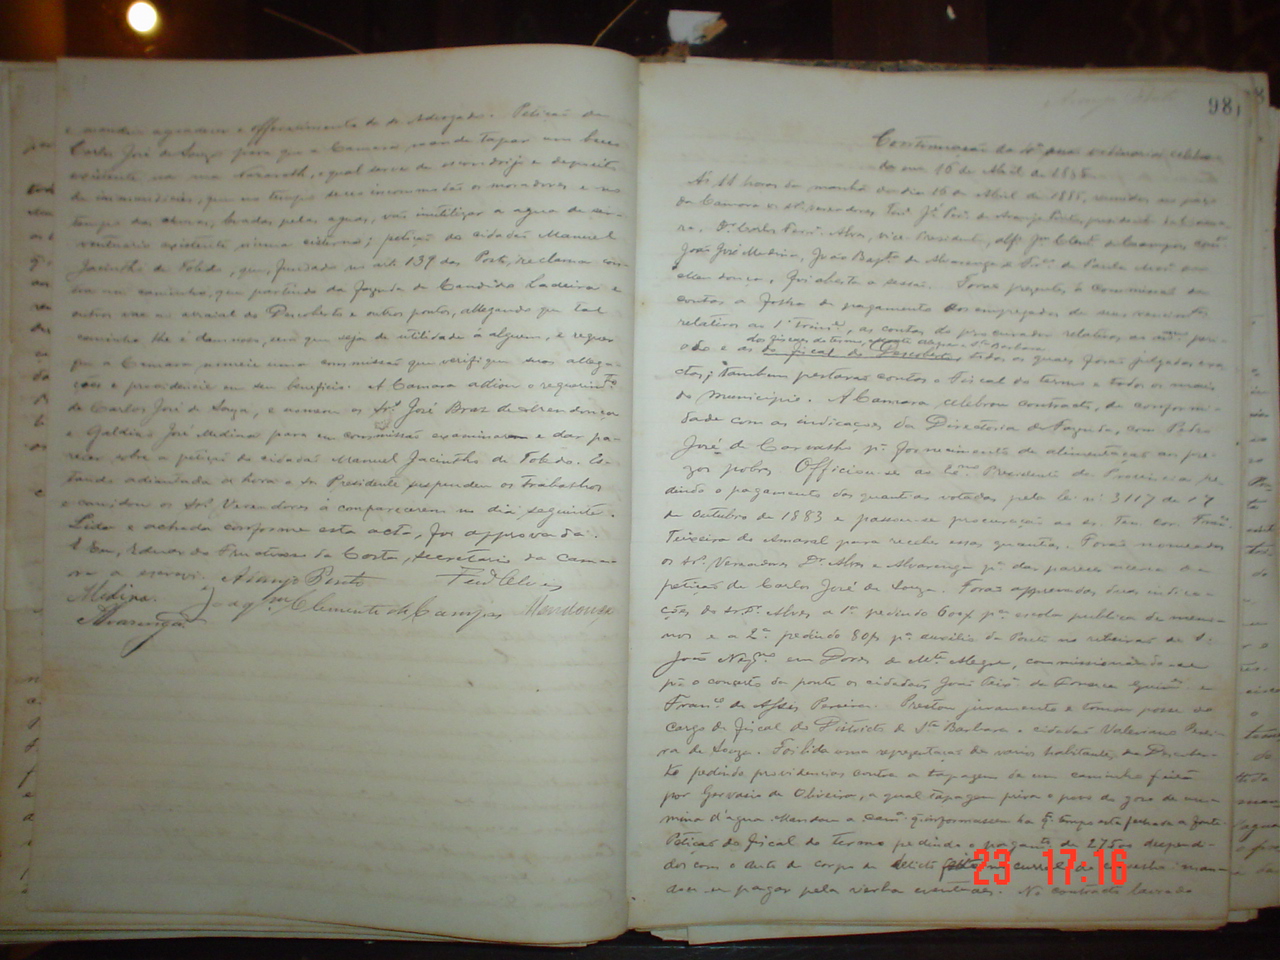 e mandou agradecer o offerecimento do dr Advogado. Petição de
Carlos José de Souza para que a Camara mande tapar um becco
existente na rua Nazareth, o qual serve de escondrijo e deposito
de immundicies, que no tempo secco incommodão os moradores e no
tempo das chuvas, levadas pelas aguas, vão inutilizar a agua de ser-
ventuario existente n'uma cisterna; petição do cidadão Manuel
Jacintho de Toledo, que, fundado no art. 139 das Post., reclama con-
tra um caminho, que partindo da fazenda de Candido Ladeira e
outros vae ao arraial do Descoberto e outros pontos, allegando que tal
caminho lhe é damnoso, sem que seja de utilidade à alguem, e requer
que a Camara nomeie uma commissão que verifique suas allega-
ções e providencie em seu beneficio. A Camara adiou o requerim.to
de Carlos José de Souza, e nomeou os Srs. José Braz de Mendonça
e Galdino José Medina para em commissão examinarem e dar pa-
recer sobre a petição do cidadão Manuel Jacintho de Toledo. Es-
tando adiantada a hora o Sr. Presidente suspendeu os trabalhos
e convidou os Srs. Vereadores à comparecerem no dia seguinte.
Lida e achada conforme esta acta, foi approvada.
E Eu, Eduardo Fructuoso da Costa, secretario da Cama-
ra a escrevi. Araujo Porto Ferd Alves
Medina. Joaqm Clemente de Campos Mendonça
Alvarenga
98
Continuação da 4a sessão ordinaria, celebra-
da em 16 de Abril de 1888
Ás 11 horas da manhã do dia 16 de Abril de 1888, reunidos no paço
da Camara os Srs. Vereadores de Araujo Porto, presidente da Cama-
ra, Dr. Carlos Alves, vice-Presidente, Clemte de Campos,
João José Medina, João Bapta de Alvarenga e de Paula
Mendonça, foi aberta a sessão. Foram presentes à commissão de
contas a folha de pagamento dos empregados de seus vencimtos
relativos ao 1º Trime, as contas do procurador relativas ao mmo peri-
dos fiscaes do termo, e Sta Barbara
odo e as do fiscal do Descoberto todos os quaes forão julgadas exa-
ctas; tambem prestarão contas o Fiscal do termo e todos os mais
do municipio. A Camara celebrou contracto, de conformi-
dade com as indicações da Directoria de Fazenda, com Pedro
José de Carvalho pa fornecimento de alimentação aos pre-
zos pobres. Officiou-se ao Exmo Presidente da Provincia pe-
dindo o pagamento das quantias votadas pela lei nº 3117 de 17
de outubro de 1883 e passou-se procuração ao sr. Ten. cor.
Teixeira do Amaral para receber essas quantias. Forão nomeados
os Srs. Vereadores Dr. Alves e Alvarenga pa dar parecer acerca da
petição de Carlos José de Souza. Foram approvadas duas indica-
ções do Sr. Dr. Alves a 1a pedindo 60$ pa escola publica de meni-
nos e a 2a pedindo 80$ pa auxilio da Ponte no ribeirão de S.
João em Dores do Mte Alegre, commissionando-se
pa o concerto da ponte os cidadãos José da Fonseca e
Franco de Assis Pereira. Prestou juramento e tomou posse do
cargo de fiscal do Districto de Sta Barbara o cidadão Valeriano Perei-
ra de Souza. Foi lida uma representação de varios habitantes do Descober-
to pedindo providencias contra a tapagem de um caminho feita
por Gervasio de Oliveira, a qual tapagem priva o povo do gozo de uma
mina d'agua. Mandou a cama q'informassem ha q. tempo está fechada a fonte.
Petição do fiscal do termo pedindo o pagamto de 275 despendi-
dos com o auto de corpo de delicto feito no curral do conselho: man-
dou-se pagar pela verba eventuaes. No contracto lavrado
23 17:16